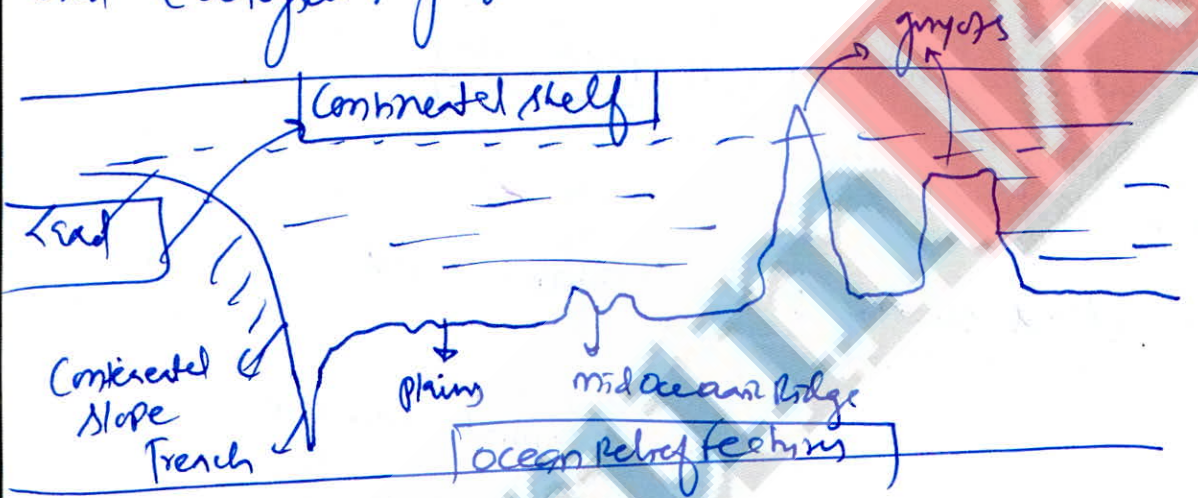 guyots
Continental shelf
Land
Continental
slope
Trench
plains
mid oceanic Ridge
ocean Relief features